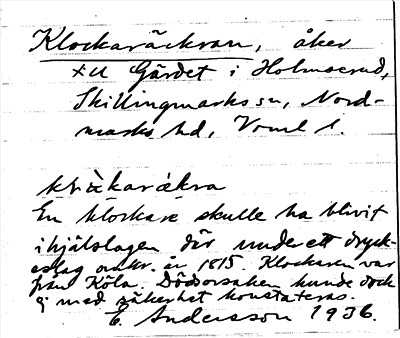 Klockaråckran, åker
×u Gärdet i Holmserud,
Skillingmarks sn, Nord-
marks hd, Vrml l.
klɔ̀kar
En klockare skulle ha blivit
ihjälslagen där under ett dryck-
eslag omkr. år 1815. Klockaren var
från Köla. Dödsorsaken kunde dock
ej med säkerhet konstateras.
E. Andersson 1936.